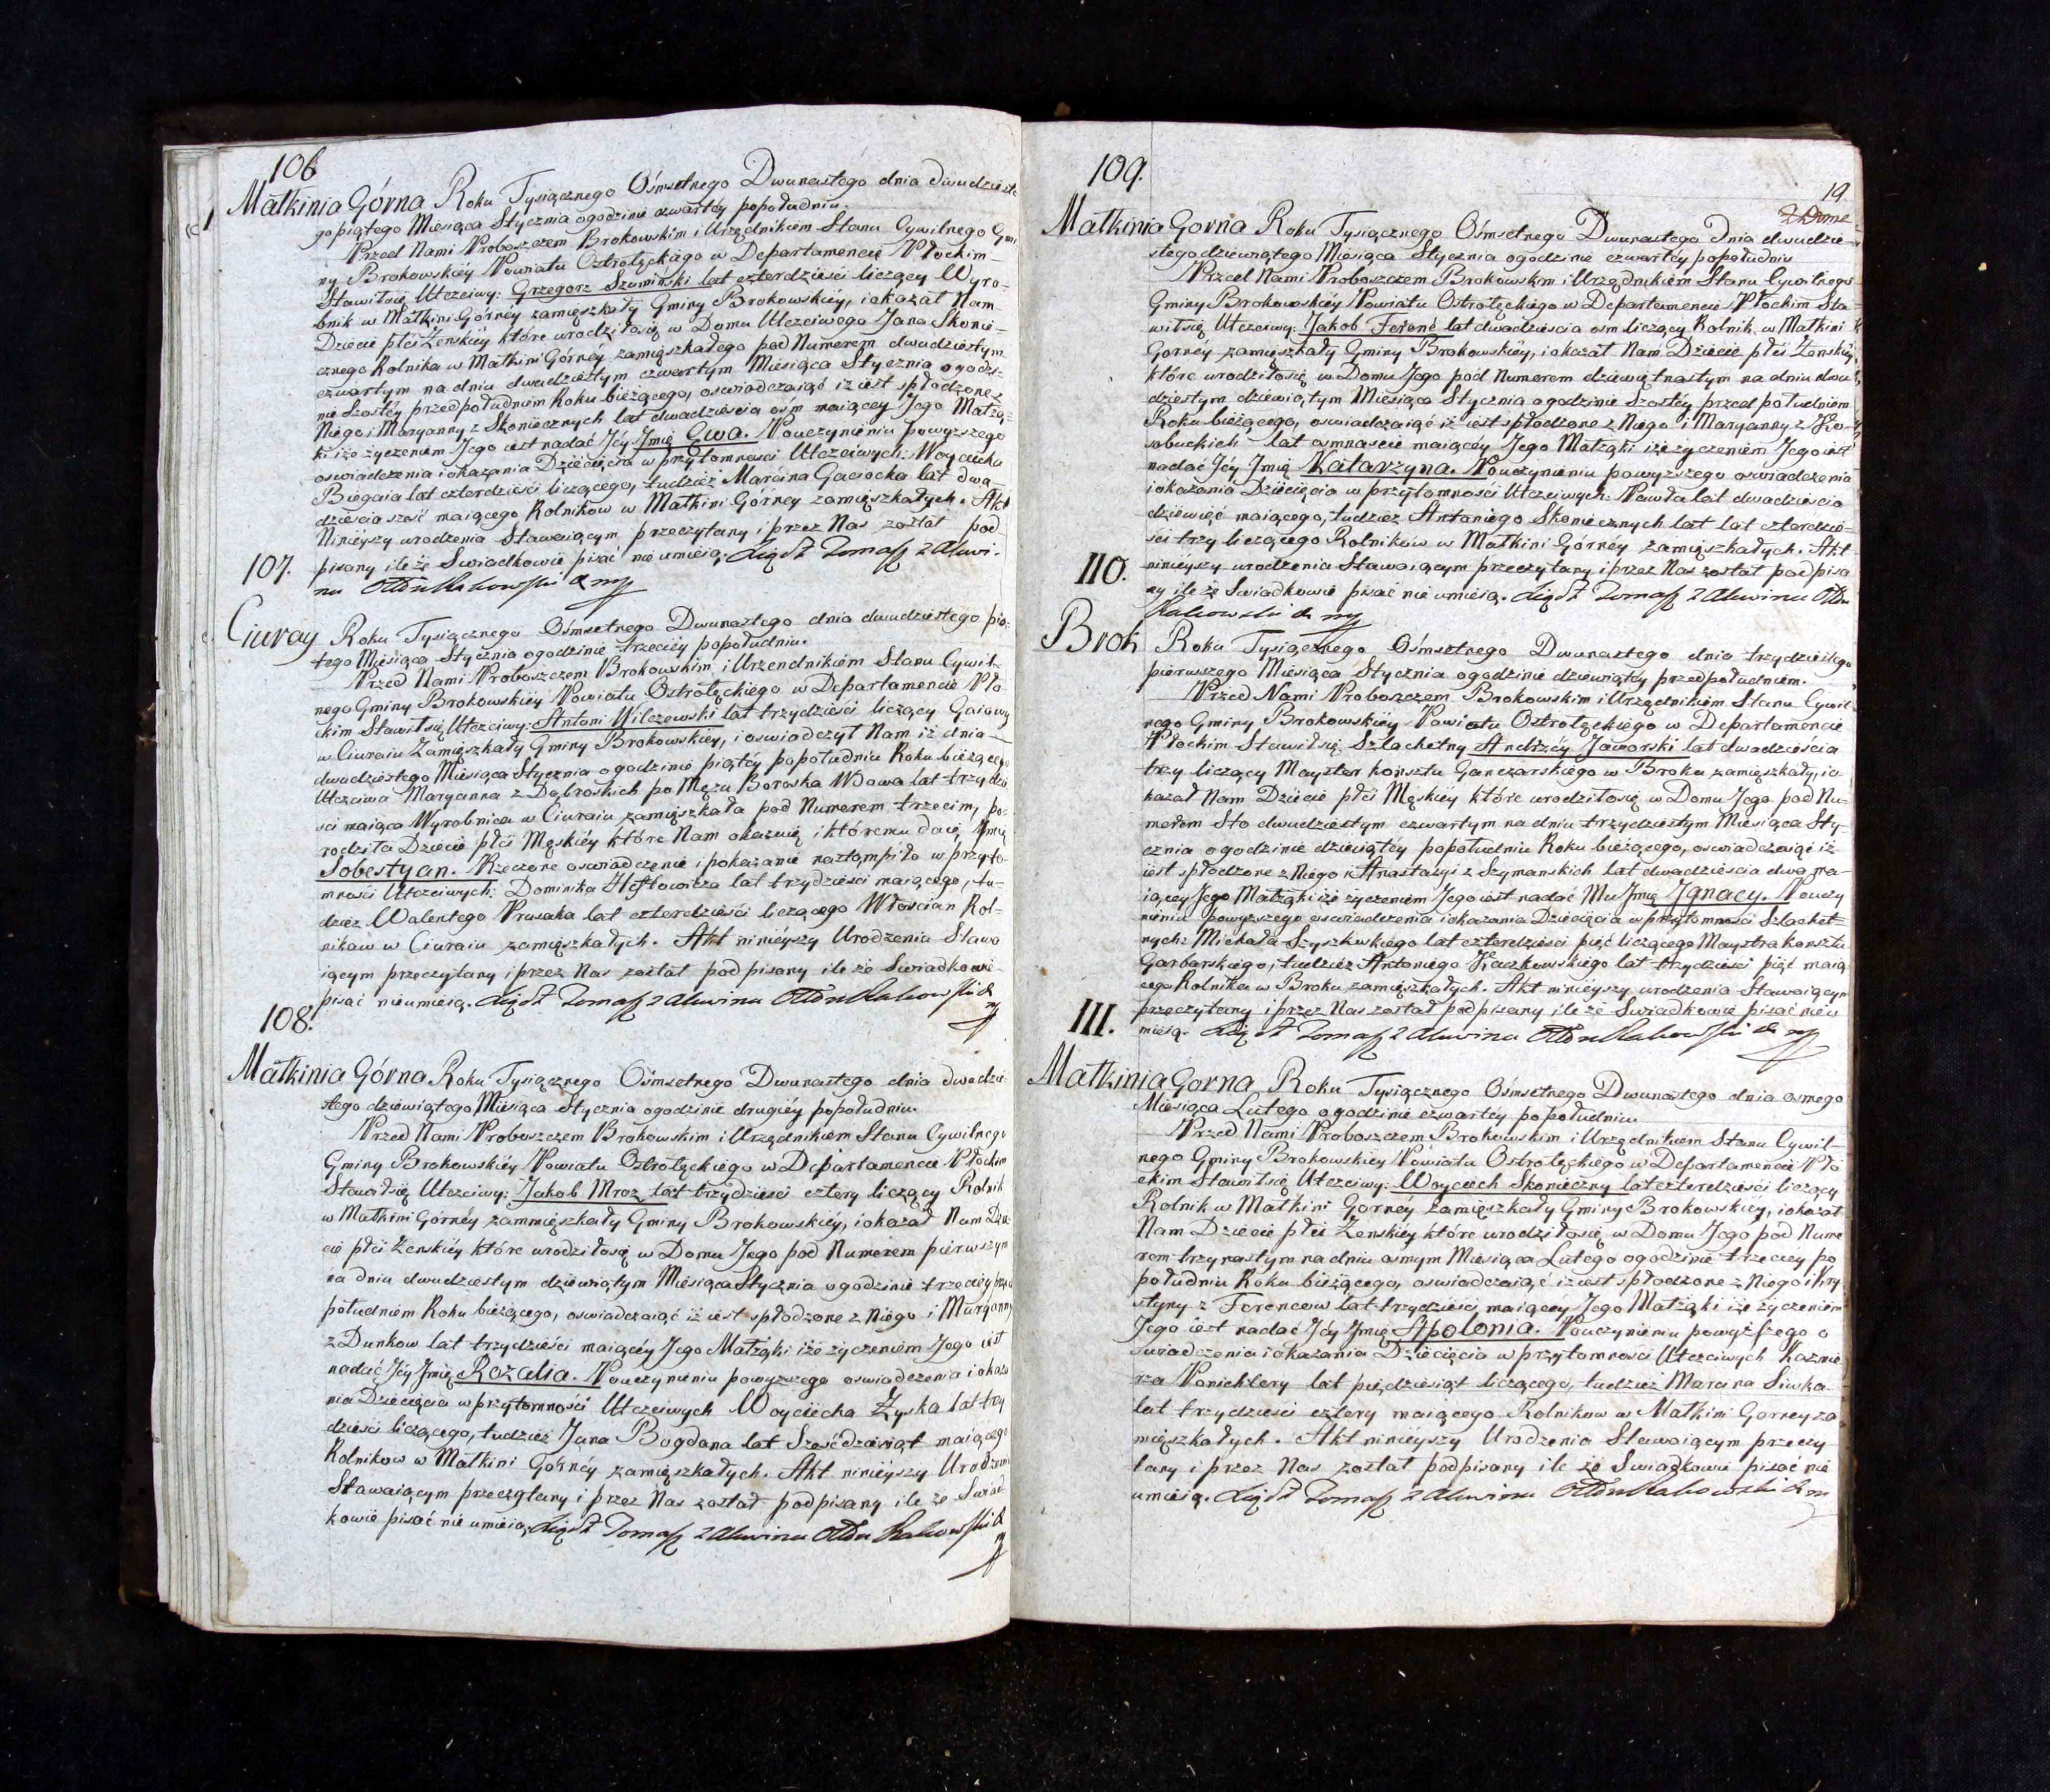 106
Małkinia Górna Roku Tysiącznego Ośmsetnego Dwunastego dnia dwudzieste
go piątego Miesiąca Stycznia ogodzinie czwartey popołudniu.
Przed Nami Proboszczem Brokowskim i Urzędnikiem Stanu Cywilnego Gmi
ny Brokowskiéy Powiatu Ostrołęckiego w Departamencie Płockim
Stawiłsię Utzciwy: Grzegorz Szumiński lat czterdzieści liczący Wyro-
bnik w Małkini Górnéy zamięszkały Gminy Brokowskiéy, i okazał Nam
Dziecie płci Żenskiéy które urodziłosię w Domu Utczciwego Jana Skonie-
cznego Rolnika w Małkini Górnéy zamięszkałego pod Numerem dwudziestym
czwartym na dniu dwudziestym czwartym Miesiąca Stycznia ogodzi-
nie Szostéy przedpołudniem Roku bieżącego, oswiadczaiąc iż iest spłodzone z
Niego i Maryanny z Skoniecznych lat dwadzieścia ośm maiącey Jego Małżą-
ki iże życzeniem Jego iest nadać Jéy Jmię Ewa. Pouczynieniu powyższego
oswiadczenia i okazania Dziecięcia w przytomnosci Utczciwych: Woyciecha
Biegaia lat czterdzieści liczącego, tudzież Marcina Gaciocka lat dwa
dzieścia sześć maiącego Rolnikow w Małkini Górnéy zamięszkałych. Akt
Ninieyszy urodzenia Stawaiącym przeczytany i przez Nas został pod
107. pisany ile że Swiadkowie pisać nie umieią. Xiądz Tomasz
Ciuray Roku Tysiącznego Ośmsetnego Dwunastego dnia dwudziestego pią-
tego Miesiąca Stycznia ogodzinie trzeciéy popołudniu.
Przed Nami Proboszczem Brokowskim i Urzendnikiem Stanu Cywil-
nego Gminy Brokowskiéy Powiatu Ostrołęckiego w Departamencie Pło-
ckim Stawiłsię Utzciwy: Antoni Wilczewski lat trzydzieści liczący Gaiowy
w Ciuraiu Zamięszkały Gminy Brokowskiéy, i oswiadczył Nam iż dnia
dwudziestego Miesiąca Stycznia ogodzinie piątéy popołudniu Roku bieżącego
Utzciwa Maryanna z Dąbroskich po Mężu Boroska Wdowa lat trzydzie
sci maiąca Wyrobnica w Ciuraiu zamięszkała pod Numerem trzecim, po-
rodziła Dziecie płci Męskiéy które Nam okazuię i któremu daię Jmię
Sobestyan. Rzeczone oswiadczenie i pokazanie nastompiło w przyto-
mnosci Utzciwych: Dominika lat trzydzieści maiącego, tu-
dzież Walentego Prusaka lat czterdzieści liczącego Włoscian Rol-
nikow w Ciuraiu zamięszkałych. Akt ninieyszy Urodzenia Stawa
iącym przeczytany i przez Nas został podpisany ile że Swiadkowie
pisać nieumieią. Xiądz Tomasz
108.
Małkinia Górna Roku Tysiącznego Ośmsetnego Dwunastego dnia dwudzie
stego dziewiątego Miesiąca Stycznia ogodzinie drugiéy popołudniu
Przed Nami Proboszczem Brokowskim i Urzędnikiem Stanu Cywilnego
Gminy Brokowskiéy Powiatu Ostrołęckiego w Departamencie Płockim
Stawiłsię Utzciwy: Jakob Mroz lat trzydzieści cztery liczący Rolnik
w Małkini Górnéy zammięszkały Gminy Brokowskiéy, i okazał Nam Dzie
cie płci Żenskiéy które urodziłosię w Domu Jego pod Numerem pierwszym
na dniu dwudziestym dziewiątym Miesiąca Stycznia ogodzinie trzeciéy przed
południem Roku bieżącego, oswiadczaiąc iż iest spłodzone z Niego i Maryanny
z Dunkow lat trzydzieści maiącéy Jego Małżąki iże życzeniem Jego iest
nadać Jéy Jmię Rozalia. Pouczynieniu powyższego oswiadczenia i okaza
nia Dziecięcia w przytomności Utczciwych Woyciecha Żyska lat trzy
dzieści liczącego, tudzież Jana Bogdana lat Szesćdziesiąt maiącego
Rolnikow w Małkini Górnéy zamięszkałych. Akt ninieyszy Urodzenia
Stawaiącym przeczytany i przez Nas został podpisany ile że Swiad
kowie pisać nie umieią. Xiądz Tomasz
109.
19
Małkinia Gorna Roku Tysiącznego Ośmsetnego Dwunastego dnia dwudzie-
stego dziewiątego Miesiąca Stycznia ogodzinie czwartéy popołudniu
Przed Nami Proboszczem Brokowskim i Urzędnikiem Stanu Cywilnego
Gminy Brokowskiéy Powiatu Ostrołęckiego w Departamencie Płockim Sta-
wiłsię Utczciwy: Jakob Ferenc lat dwadzieścia osm liczący Rolnik w Małkini
Gornéy zamięszkały Gminy Brokowskiéy, i okazał Nam Dziecie płci Żenskiéy
które urodziłosię w Domu Jego pod Numerem dziewiętnastym na dniu dwu
dziestym dziewiątym Miesiąca Stycznia ogodzinie Szostéy przed południem
Roku bieżącego, oswiadczaiąc iż iest spłodzone z Niego i Maryanny z Ko-
sobuckich lat osmnascie maiącéy Jego Małżąki iże życzeniem Jego iest
nadać Jéy Jmię Katarzyna. Pouczynieniu powyższego oswiadczenia
i okazania Dziecięcia w przytomności Utczciwych: Pawła lat dwadzieścia
dziewięć maiącego, tudzież Antoniego Skoniecznych lat lat czterdzie-
ści trzy liczącego Rolnikow w Małkini Górnéy zamięszkałych. Akt
110. ninieyszy urodzenia Stawaiącym przeczytany i przez Nas został podpisa
ny ile że Swiadkowie pisać nie umieią. Xiądz Tomasz
Brok Roku Tysiącznego Ośmsetnego Dwunastego dnia trzydziestego
pierwszego Miesiąca Stycznia ogodzinie dziewiątéy przedpołudniem.
Przed Nami Proboszczem Brokowskim i Urzędnikiem Stanu Cywil
nego Gminy Brokowskiéy Powiatu Ostrołęckiego w Departamencie
Płockim Stawiłsię Szlachetny Andrzéy Jaworski lat dwadzieścia
trzy liczący Mayster konsztu Ganczarskiego w Broku zamięszkały, io
kazał Nam Dziecie płci Męskiéy które urodziłosię w Domu Jego pod Nu-
merem Sto dwudziestym czwartym na dniu trzydziestym Miesiąca Sty-
cznia ogodzinie dziesiątéy popołudniu Roku bieżącego, oswiadczaiąc iż
iest spłodzone z Niego i Anastazyi z Szymanskich lat dwadzieścia dwa ma-
iącey Jego Małżąki iże życzeniem Jego iest nadać Mu Jmię Jgnacy. Pouczy
nieniu powyższego oswiadczenia i okazania Dziecięcia w przytomności Szlachet-
nych: Michała Szyszkoskiego lat czterdzieści pięć liczącego Maystra konsztu
Garbarskiego, tudzież Antoniego Kaczkowskiego lat trzydzieści pięć maią
cego Rolnika w Broku zamięszkałych. Akt ninieyszy urodzenia Stawaiącym
111. przeczytany i przez Nas został podpisany ile że Swiadkowie pisać nieu
mieią. Xiądz Tomasz
Małkinia Gorna Roku Tysiącznego Ośmsetnego Dwunastego dnia osmego
Miesiąca Lutego ogodzinie czwartéy popołudniu
Przed Nami Proboszczem Brokowskim i Urzędnikiem Stanu Cywil-
nego Gminy Brokowskiéy Powiatu Ostrołęckiego w Departamencie Pło
ckim Stawiłsię Utczciwy: Woyciech Skonieczny lat czterdzieści liczący
Rolnik w Małkini Gornéy Zamięszkały Gminy Brokowskiéy, i okazał
Nam Dziecie płci Żenskiéy które urodziłosię w Domu Jego pod Nume
rem trzynastym na dniu osmym Miesiąca Lutego ogodzinie trzeciéy po
południu Roku bieżącego, oswiadczaiąc iż iest spłodzone z Niego i Kry
styny z Ferencow lat trzydzieści maiącéy Jego Małżąki iże życzeniem
Jego iest nadać Jéy Jmię Apolonia. Pouczynieniu powyższego o
swiadczenia i okazania Dziecięcia w przytomności Utczciwych Kazmie
rza Ponichtery lat pięcdziesiąt liczącego, tudzież Marcina Siwka
lat trzydzieści cztery maiącego Rolnikow w Małkini Gornéy za
mięszkałych. Akt ninieyszy Urodzenia Stawaiącym przeczy
tany i przez Nas został podpisany ile że Swiadkowie pisać nie
umieią. Xiądz Tomasz